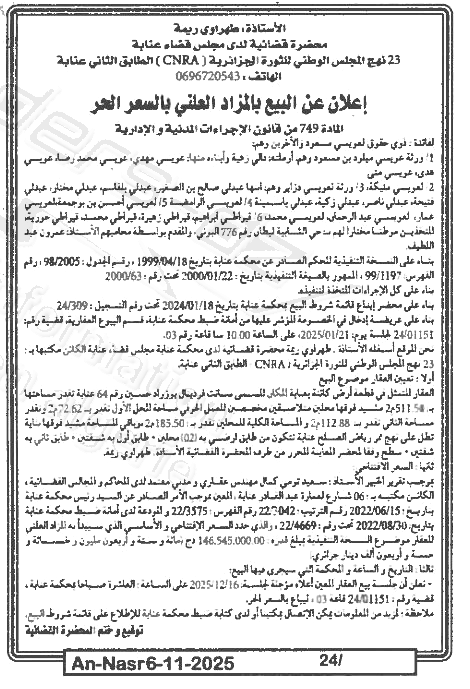 الأستاذة، طهراوي ريمة
محضرة قضائية لدى مجلس قضاء عنابة
23 نهج المجلس الوطني للثورة الجزائرية ( CNRA ) الطابق الثاني عنابة
الهاتف : 0696720543
إعلان عن البيع بالمزاد العلني بالسعر الحر
المادة 749 من قانون الإجراءات المدنية و الإدارية
لفائدة : ذوي حقوق لعويسي مسعود والآخرين وهم:
1/ ورثة عويسي ميلود بن مسعود وهم أرملته: دالي زهية وأبناءه منها: عويسي مهدي، عويسي محمد رضا، عويسي هدى، عويسي منى
2/ لعويسي مليكة، 3/ ورثة لعويسي دزاير وهم: أمها عبدلي صالح بن الصغير، عبدلي بلقاسم، عبدلي مختار، عبدلي
فتيحة، عبدلي ناصر، عبدلي زكية، عبدلي ياسمينة 4/ لعويسي الرامضة 5/ لعويسي أحسن بن بوجمعة لعويسي
عمار، لعويسي عبد الرحمان، لعويسي محمد 6/ قيراطي ابراهيم، قيراطي زهيرة، قيراطي محمد، قيراطي حورية،
المتخذين موطنا مختارا لهم بدحي الشابية ليطان رقم 776 البوني، والقدوم بواسطة محاميهم الأستاذ: عمرون عبد اللطيف.
بناء على النسخة التنفيذية للحكم الصادر عن محكمة عنابة بتاريخ 1999/04/18 ، رقم الجدول : 98/2005 ، رقم
الفهرس : 99/1197 ، الممهور بالصيغة التنفيذية بتاريخ : 2000/01/22 تحت رقم : 2000/63
بناء على كل الإجراءات المتخذة للتنفيذ.
بناء على محضر إيداع قائمة شروط البيع بمحكمة عنابة بتاريخ 2024/01/18 تحت رقم التسجيل : 24/309
بناء على عريضة إدخال في الخصومة المؤشر عليها من أمانة ضبط محكمة عنابة، قسم البيوع العقارية، قضية رقم :
24/01151 لجلسة يوم : 2025/01/21، على الساعة 10.00 سا قاعة رقم 03.
نحن الموقع أسفله الأستاذة : طهراوي ريمة محضرة قضائية لدى محكمة عنابة مجلس قضاء عنابة الكائن مكتبها بـ :
23 نهج المجلس الوطني للثورة الجزائرية CNRA الطابق الثاني عنابة.
أولا : تعيين العقار موضوع البيع
العقار المتمثل في قطعة أرض كائنة بعنابة المكان المسمى سانت فردينال بوزراد حسين رقم 64 عنابة تقدر مساحتها
بـ 511.58م2 مشيد فوقها محلين متلاصقين مخصصين للعمل الحرفي مساحة المحل الأول تقدر بـ 72.62م2 وتقدر
مساحة الثاني بـ 112.88م2 و المساحة الكلية للمحلين تقدر بـ 185.50م2 وباقي المساحة مشيد فوقها بناية
تطل على نهج ممر رياض الصلح عنابة تتكون من طابق أرضي به (02) محلين + طابق أول به شقتين + طابق ثاني به
شقتين + سطح وفقا لمحضر المعاينة المحرر من طرف المحضرة القضائية الأستاذة. طهراوي ريمة.
ثانيا : السعر الافتتاحي :
بموجب تقرير الخبير الأستاذ : سعيد تومي كمال مهندس عقاري و مدني معتمد لدى المحاكم و المجالس القضائية ،
الكائن مكتبه بـ : 06 شارع لعمارة عبد القادر عنابة : المعين بموجب الأمر الصادر عن السيد رئيس محكمة عنابة
بتاريخ : 2022/06/15 رقم الترتيب : 22/3042 رقم الفهرس : 22/3575 و المودعة لدى أمانة ضبط محكمة عنابة
بتاريخ : 2022/08/30 تحت رقم : 22/4669 ، والذي حدد السعر الإفتتاحي و الأساسي الذي سيبدأ به المزاد العلني
للعقار موضوع النسخة التنفيذية بمبلغ قدره : 146.545.000.00 دج (مائة و ستة و أربعون مليون و خمسمائة و
خمسة و أربعون ألف دينار جزائري).
ثالثا : التاريخ و الساعة و المحكمة التي سيجرى فيها البيع:
- نعلن أن جلسة بيع العقار المعين أعلاه مؤجلة لجلسة : 2025/12/16 على الساعة : العاشرة صباحا بمحكمة عنابة ،
قضية رقم : 24/01151 قاعة 03 ، ليباع بالسعر الحر.
ملاحظة : لمزيد من المعلومات يمكن الإتصال بمكتبنا أو لدى كتابة ضبط محكمة عنابة للإطلاع على قائمة شروط البيع.
توقيع و ختم المحضرة القضائية
An-Nasr6-11-2025
24/